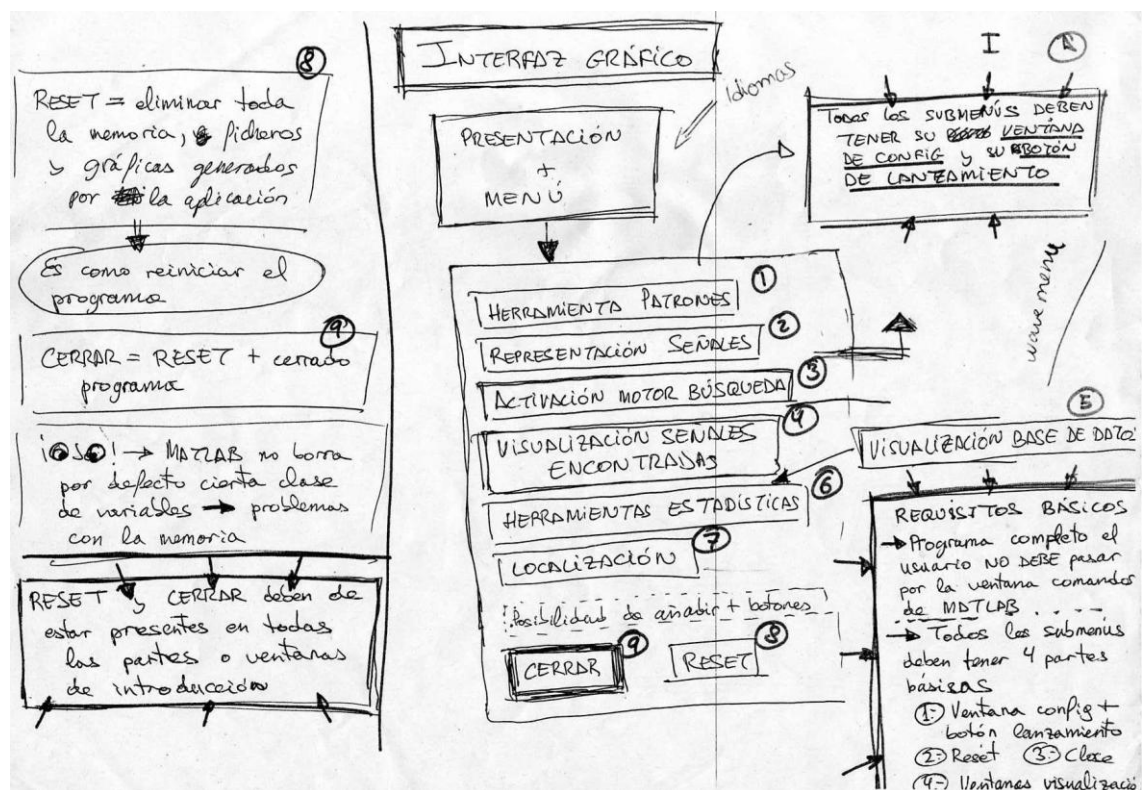 ⑧
RESET = eliminar toda
la memoria, ficheros
y gráficas generados
por la aplicación
Es como reiniciar el
programa
⑨
CERRAR = RESET + cerrado
programa
¡OJO! → MATLAB no borra
por defecto cierta clase
de variables → problemas
con la memoria
RESET y CERRAR deben de
estar presentes en todas
las partes o ventanas
de introducción
INTERFAZ GRÁFICO
Idiomas
PRESENTACIÓN
+
MENÚ
HERRAMIENTA PATRONES ①
REPRESENTACIÓN SEÑALES ②
ACTIVACIÓN MOTOR BÚSQUEDA ③
VISUALIZACIÓN SEÑALES ④
ENCONTRADAS
HERRAMIENTAS ESTADÍSTICAS ⑥
LOCALIZACIÓN ⑦
Posibilidad de añadir + botones
CERRAR ⑨ RESET ⑧
I
TODOS LOS SUBMENÚS DEBEN
TENER SU VENTANA
DE CONFIG Y SU BOTÓN
DE LANZAMIENTO
menu
⑤
VISUALIZACIÓN BASE DE DATO
REQUISITOS BÁSICOS
→ Programa completo el
usuario NO DEBE pasar
por la ventana comandos
de MATLAB
→ Todos los submenús
deben tener 4 partes
básicas
①- Ventana config +
botón lanzamiento
②- Reset ③- Close
④- Ventanas visualizació